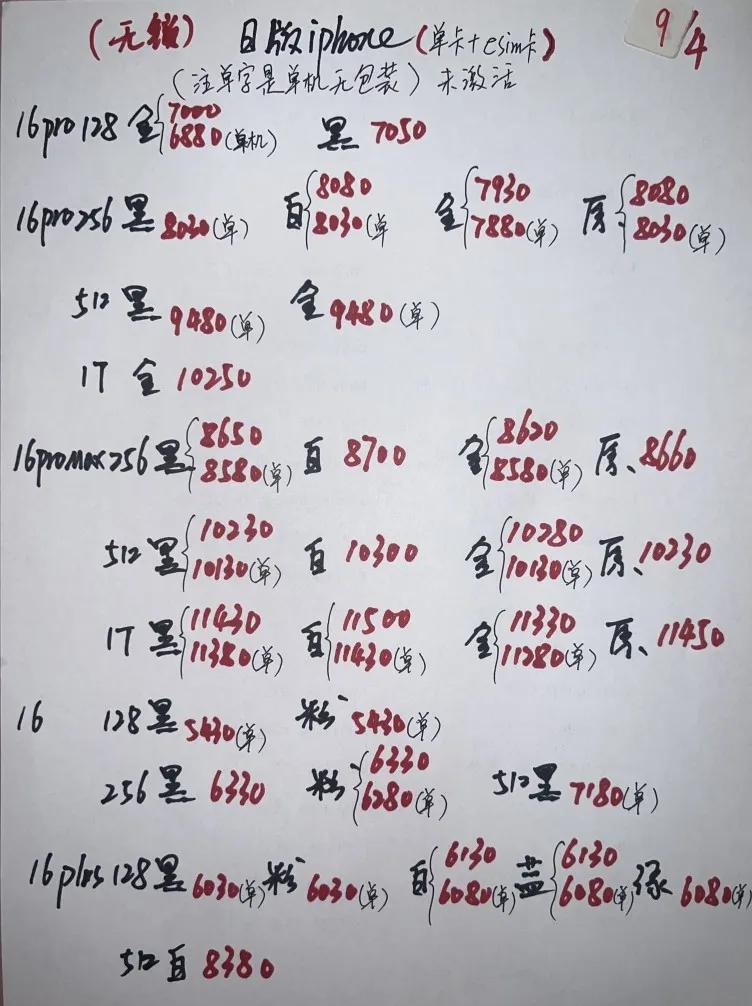 (无锁) 日版iphone(单卡+esim卡) 9/4
(注单字是单机无包装)未激活
16pro128 金{7000 6880(单机) 黑 7050
16pro256 黑 8030(单) 白{8080 8030(单 金{7930 7880(单) 原{8080 8030(单)
512 黑 9480(单) 金 9480(单)
1T 金 10250
16promax256 黑{8650 8580(单) 白 8700 金{8620 8580(单) 原、8660
512 黑{10230 10130(单) 白 10300 金{10280 10130(单) 原、10230
1T 黑{11430 11380(单) 白{11500 11430(单) 金{11330 11280(单) 原、11450
16 128黑 5430(单) 粉 5430(单)
256 黑 6330 粉{6330 6280(单) 512黑 7180(单)
16plus128黑 6030(单) 粉 6030(单) 白{6130 6080(单) 蓝{6130 6080(单) 绿 6080(单)
512 白 8380